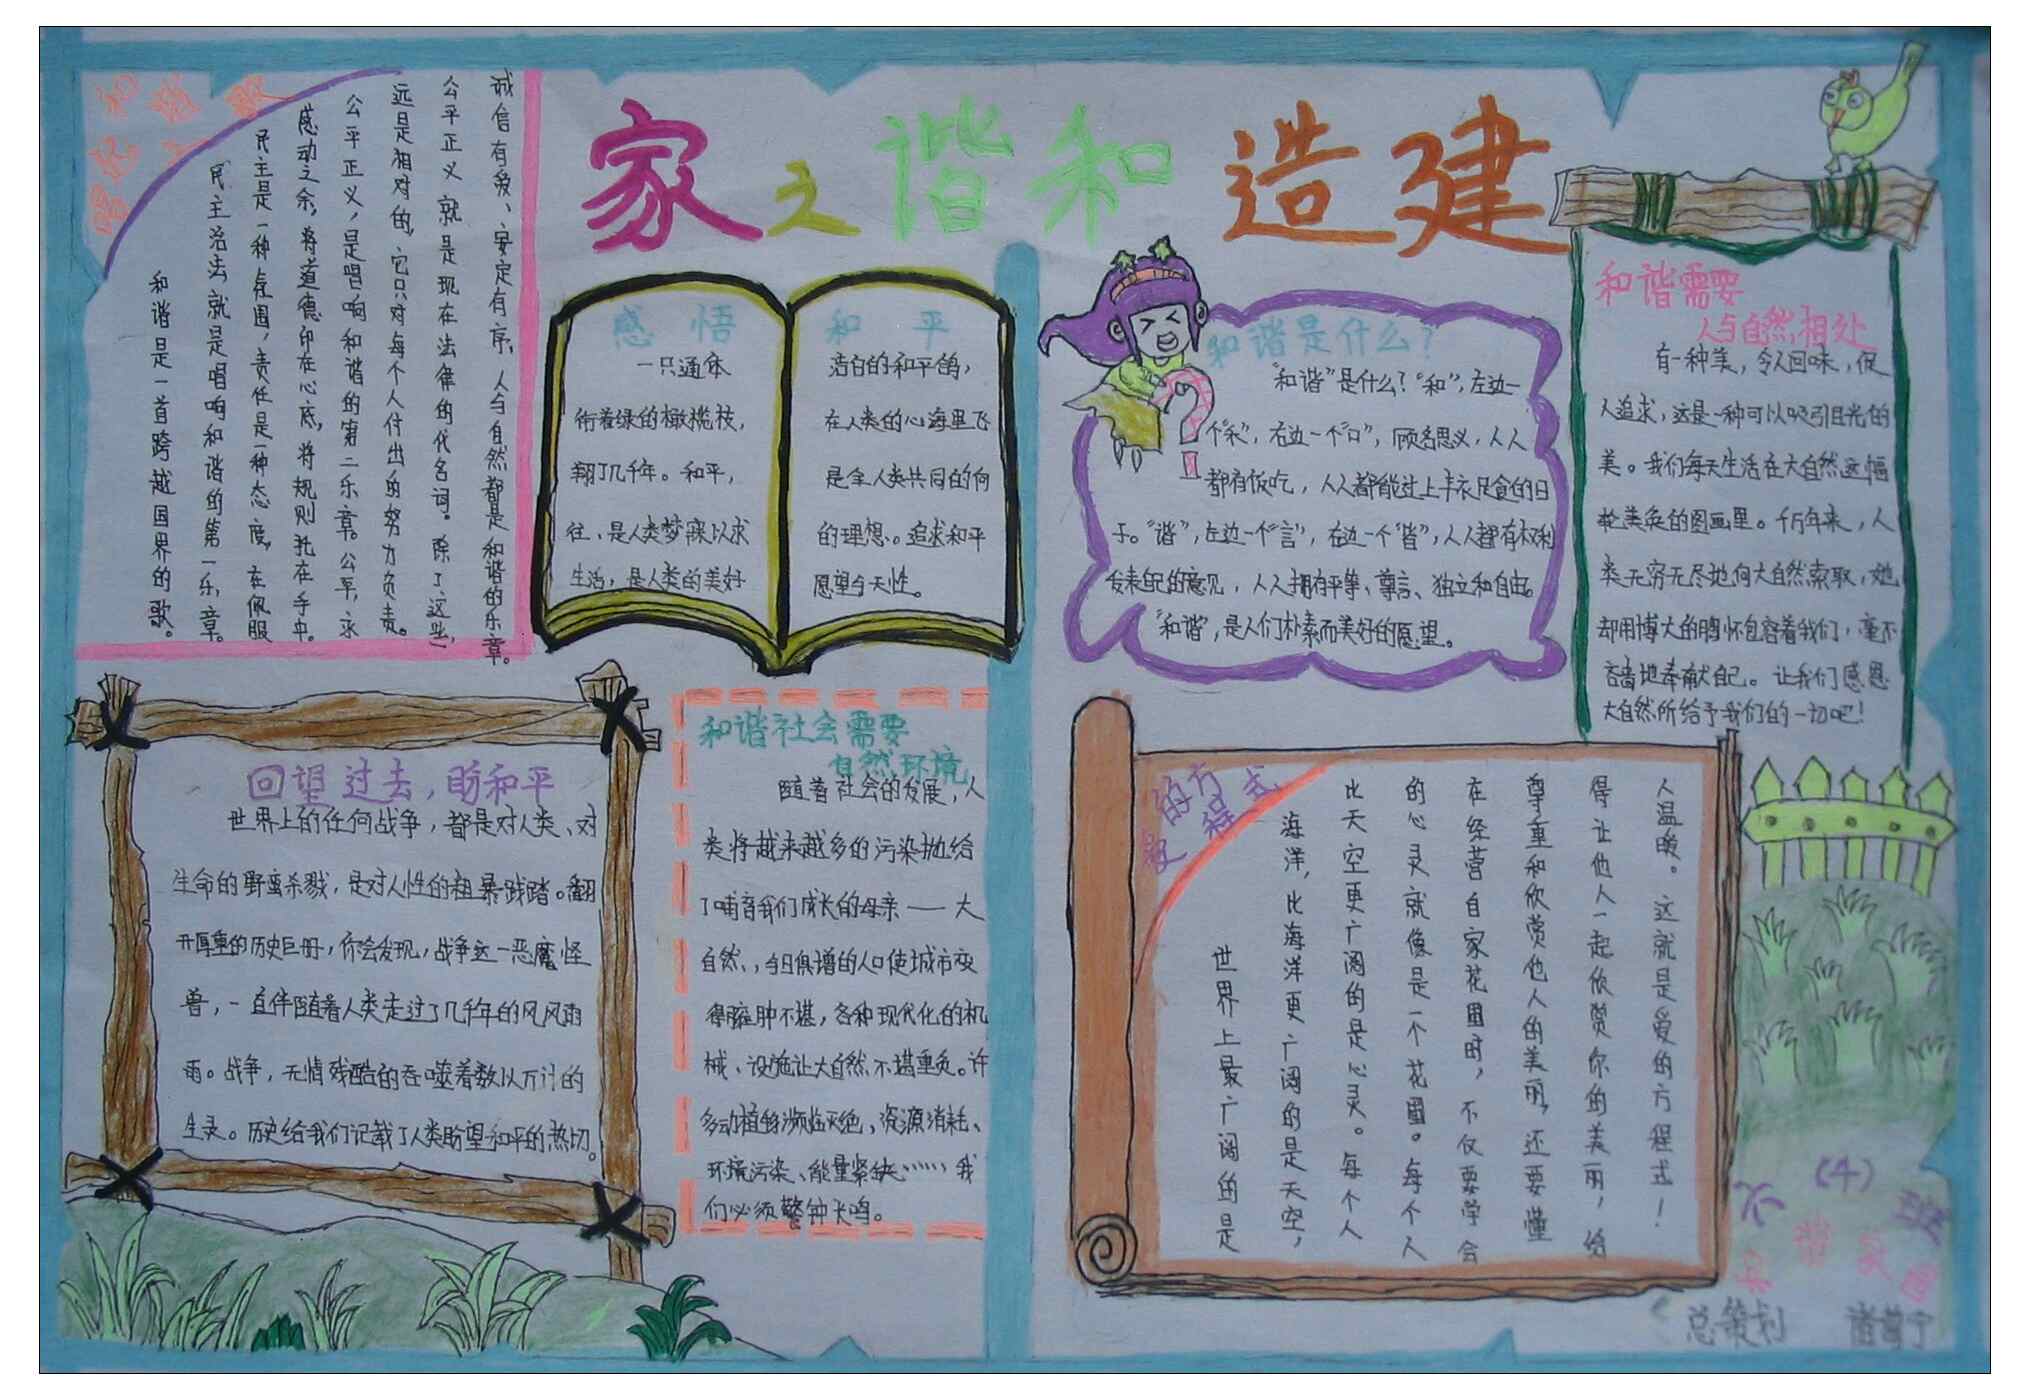 建造和谐之家
和谐是一首跨越国界的歌。
民主治法就是唱响和谐的第一乐章。
民主是一种氛围，责任是一种态度，在佩服
感动之余，将道德印在心底，将规则扎在手中。
公平正义，是唱响和谐的第二乐章。公平，永
远是相对的，它只对每个人付出的努力负责。
公平正义就是现在法律的代名词。除了这些，
诚信有爱、安定有序、人与自然都是和谐的乐章。
感悟和平
一只通体洁白的和平鸽，
衔着绿的橄榄枝，在人类的心海里飞
翔了几千年。和平，是全人类共同的向
往、是人类梦寐以求的理想。追求和平
生活，是人类的美好愿望与天性。
和谐是什么？
“和谐”是什么？“和”，左边一
个“禾”，右边一个“口”，顾名思义，人人
都有饭吃，人人都能过上丰衣足食的日
子。“谐”，左边一个“言”，右边一个“皆”，人人都有权利
发表自己的意见，人人拥有平等、尊言、独立和自由。
“和谐”，是人们朴素而美好的愿望。
和谐需要
人与自然相处
有一种美，令人回味，促
人追求，这是一种可以吸引目光的
美。我们每天生活在大自然这幅
轮美奂的图画里。千万年来，人
类无穷无尽地向大自然索取，她
却用博大的胸怀包容着我们，毫不
吝啬地奉献自己。让我们感恩
大自然所给予我们的一切吧！
回望过去，盼和平
世界上的任何战争，都是对人类、对
生命的野蛮杀戮，是对人性的粗暴践踏。翻
开厚重的历史巨册，你会发现，战争这一恶魔怪
兽，一直伴随着人类走过了几千年的风风雨
雨。战争，无情残酷的吞噬着数以万计的
生灵。历史给我们记载了人类盼望和平的热切。
和谐社会需要
自然环境
随着社会的发展，人
类将越来越多的污染抛给
了哺育我们成长的母亲——大
自然，今日俱增的人口使城市变
得臃肿不堪，各种现代化的机
械、设施让大自然不堪重负。许
多动植物濒临灭绝、资源消耗、
环境污染、能量紧缺……我
们必须警钟长鸣。
爱的方程式
世界上最广阔的是
海洋，比海洋更广阔的是天空，
比天空更广阔的是心灵。每个人
的心灵就像是一个花園。每个人
在经营自家花園时，不仅要学会
尊重和欣赏他人的美丽，还要懂
得让他人一起欣赏你的美丽，给
人温暖。这就是爱的方程式！
六（4）班
总策划